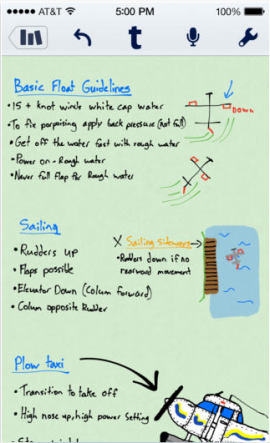 AT&T 5:00 PM 100%
t
Basic Float Guidelines
•15 + knot winds white cap water
•To fix porpoising apply back pressure (not full)
•Get off the water fast with rough water
•Power on - Rough water
•Never full flap for Rough water
DOWN
Sailing
•Rudders up
•Flaps possible
•Elevator Down (Colum forward)
•Colum opposite Rudder
X Sailing sideways
•Rudders down if no
rearward movement
Plow taxi
•Transition to take off
•High nose up, high power setting